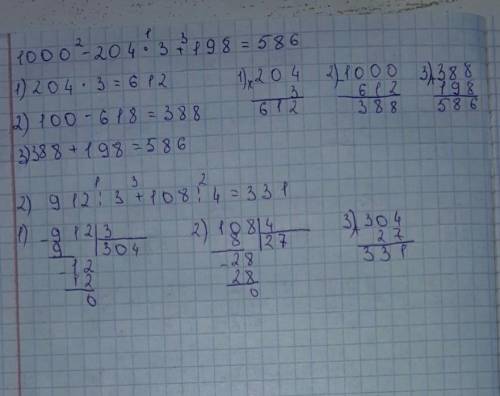 1000 ² - 204 ¹ · 3 ³ + 198 = 586
1) 204 · 3 = 612
2) 100 - 618 = 388
3) 388 + 198 = 586
1) × 204
3
612
2) 1000
612
388
3) + 388
198
586
2) 912 ¹ : 3 ³ + 108 ² : 4 = 331
1) - 912 | 3
9 | 304
- 12
12
0
2) 108 | 4
8 | 27
- 28
28
0
3) + 304
27
331